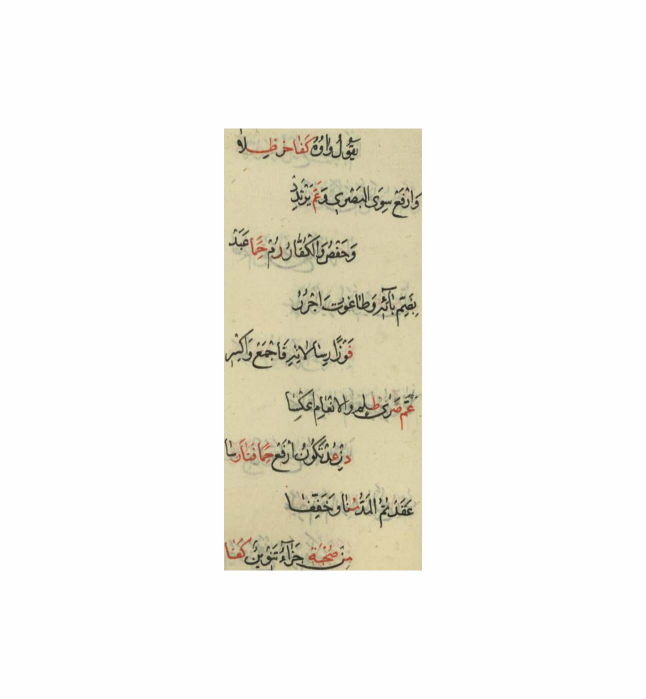 يَقُولُ وَاوُهُ كَفَا حُز ظِلَا
وَارْفَعْ سِوَى البَصْرِي وَعَمَّ يَرْتَدِدْ
وَخَفْضُ وَالكُفَّارُ رُمْ حِمًا عَبُدْ
بِضَمِّ بَائِهِ وَطَاغُوتَ اجْرُرْ
فَوْزًا رِسَالَاتِهِ فَاجْمَعْ وَاكْسِرِ
عَمَّ صَرَى ظلم وَالانْعَامِ اعْكِسَا
دِنْ عُدْ تَكُونُ ارْفَعْ حِمًا فَتًا رَسَا
عَقَدْتُمُ المَدُّ مُنًا وَخَفِّفَا
مِنْ صُحْبَةٍ جَزَاءُ تَنْوِينٌ كَفَا